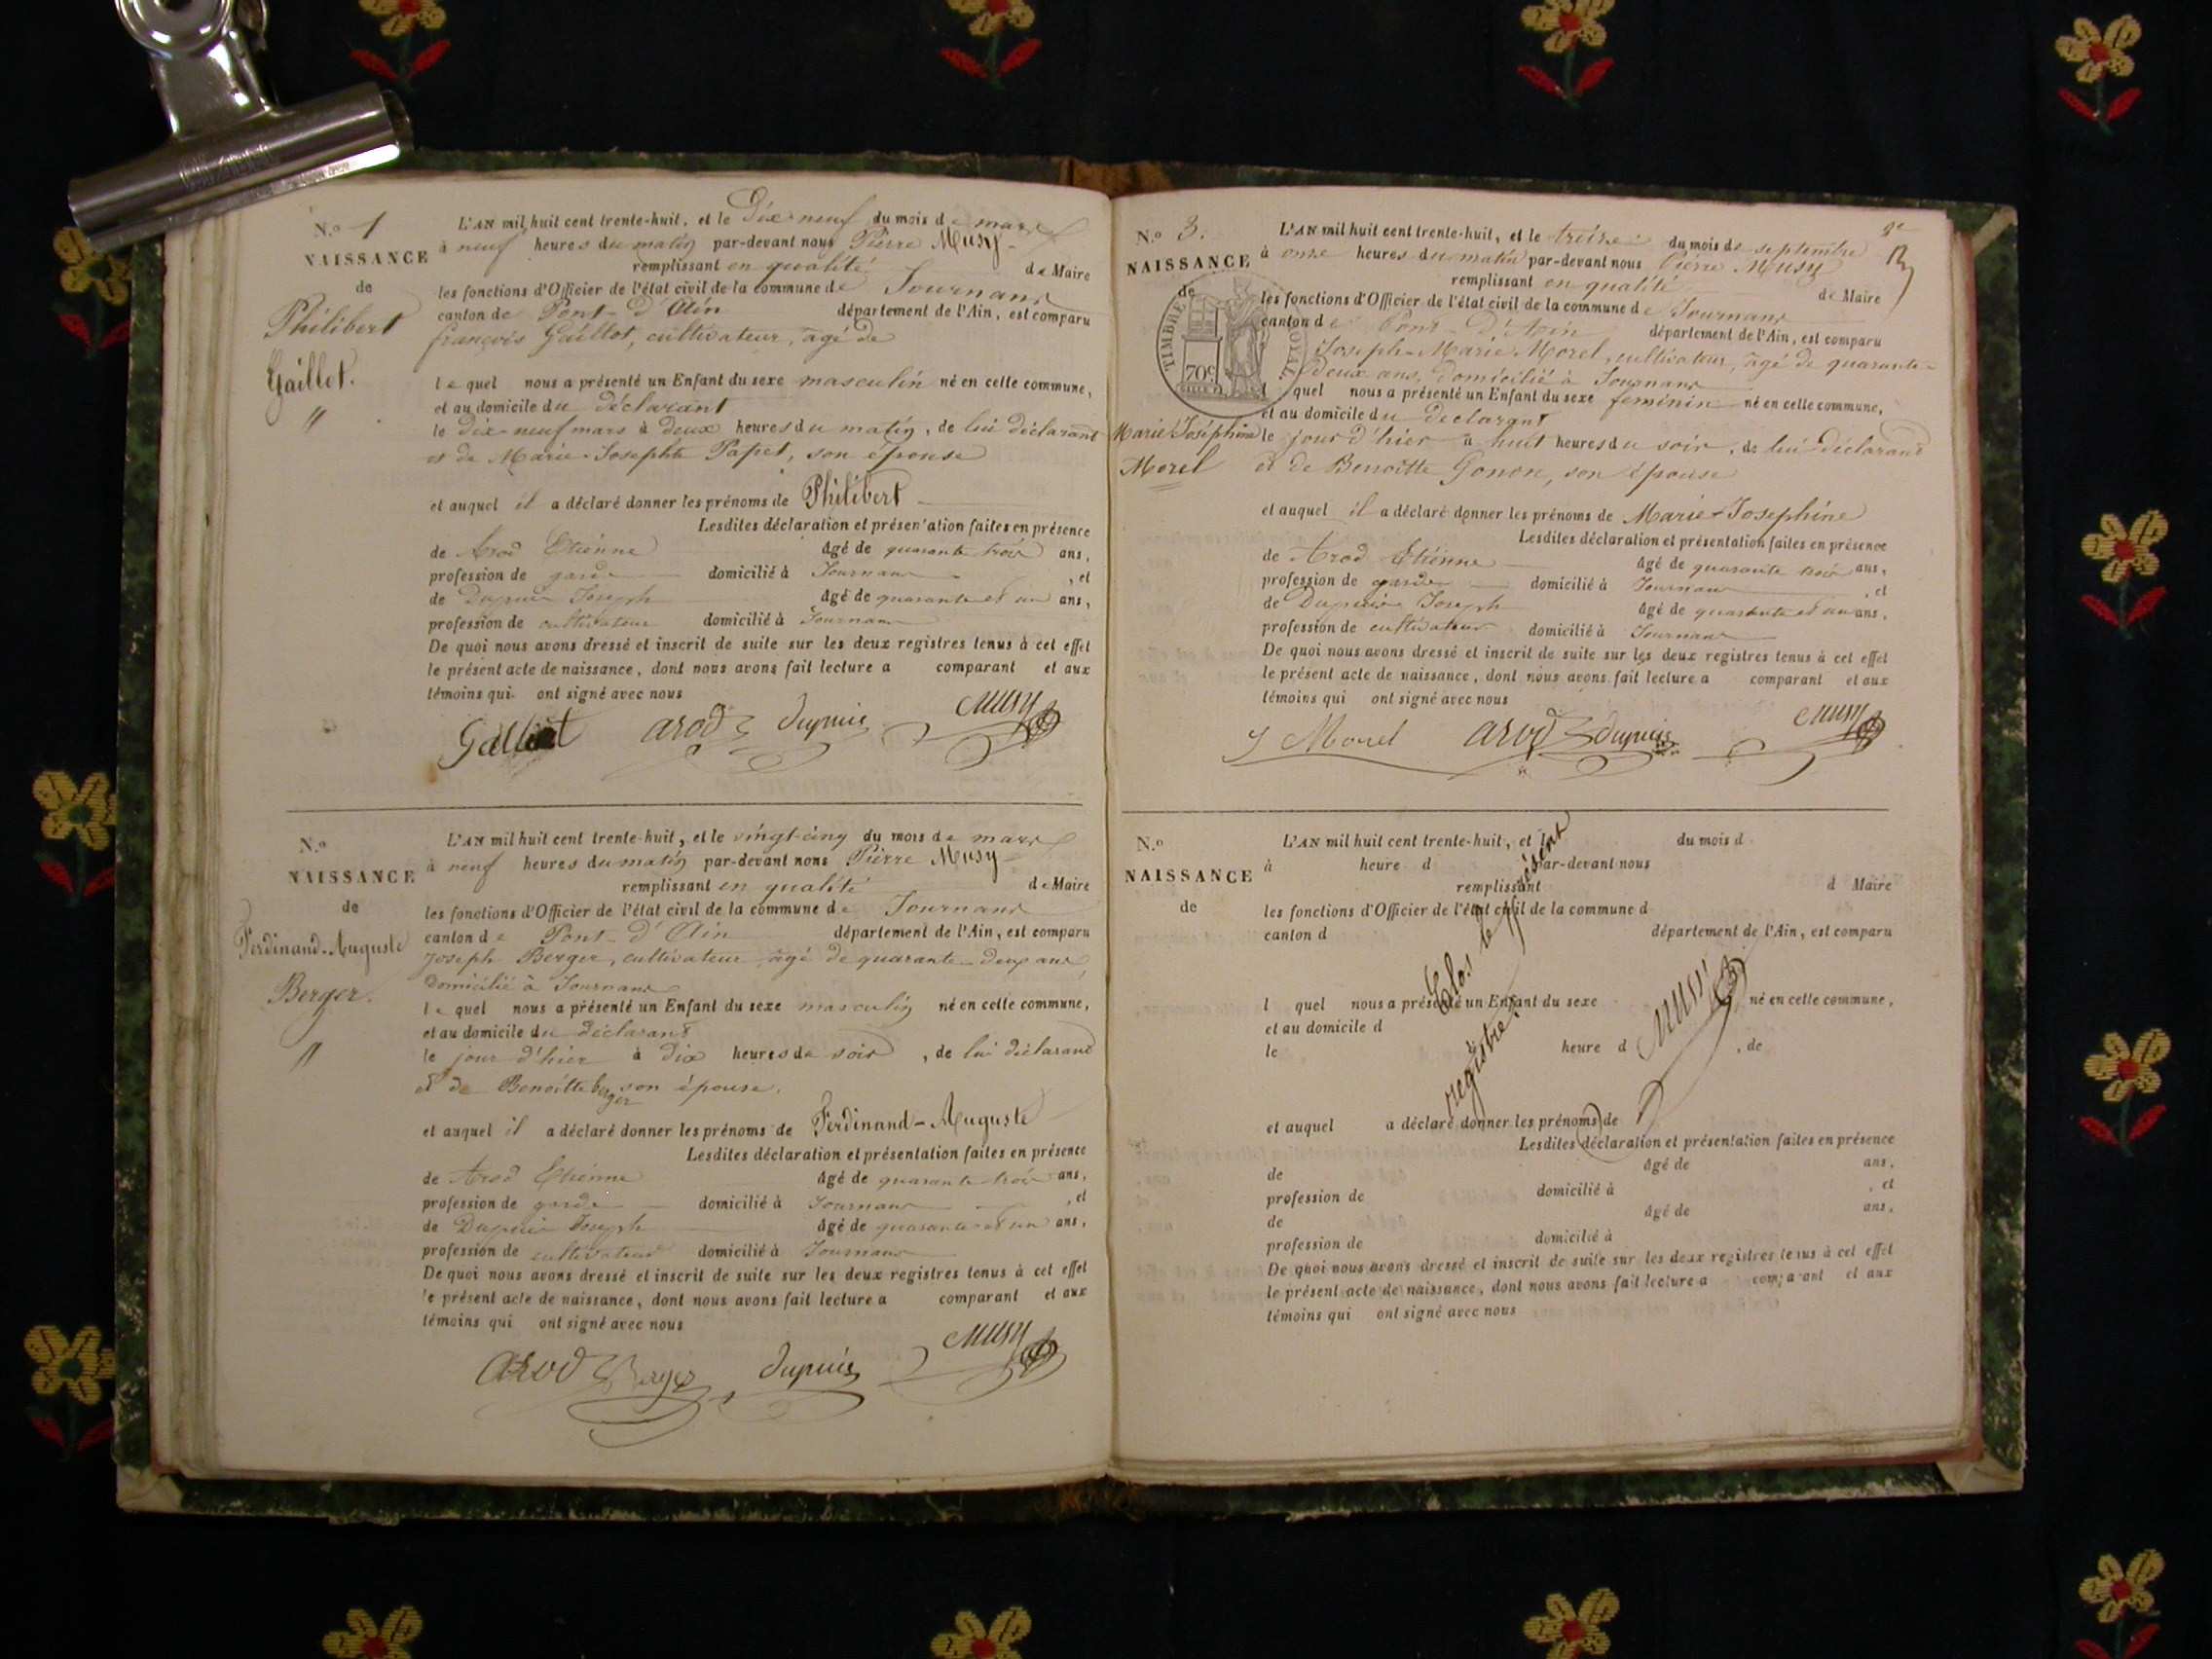 N.o 1
NAISSANCE
de
Philibert
Gaillot.
"
L'AN mil huit cent trente-huit, et le Dix-neuf du mois de mars
à neuf heures du matin par-devant nous Pierre Musy
remplissant en qualité de Maire
les fonctions d'Officier de l'état civil de la commune de Journans
canton de Pont-d'Ain département de l'Ain, est comparu
françois Gaillot, cultivateur, âgé de
lequel nous a présenté un Enfant du sexe masculin né en cette commune,
et au domicile du déclarant
le dix-neuf mars à deux heures du matin, de lui déclarant
et de Marie-Josephte Papet, son épouse
et auquel il a déclaré donner les prénoms de Philibert
Lesdites déclaration et présentation faites en présence
de Arod Etienne âgé de quarante trois ans,
profession de garde domicilié à Journans, et
de Dupuis Joseph âgé de quarante et un ans,
profession de cultivateur domicilié à Journans
De quoi nous avons dressé et inscrit de suite sur les deux registres tenus à cet effet
le présent acte de naissance, dont nous avons fait lecture a comparant et aux
témoins qui ont signé avec nous
arod dupuis Musy
N.o
NAISSANCE
de
Ferdinand-Auguste
Berger.
"
L'AN mil huit cent trente-huit, et le vingt-cinq du mois de mars
à neuf heures du matin par-devant nous Pierre Musy
remplissant en qualité de Maire
les fonctions d'Officier de l'état civil de la commune de Journans
canton de Pont-d'Ain département de l'Ain, est comparu
Joseph Berger, cultivateur âgé de quarante-deux ans
Domicilié à Journans
lequel nous a présenté un Enfant du sexe masculin né en cette commune,
et au domicile du déclarant
le jour d'hier à dix heures de soir, de lui déclarant
et de Benoitte berger son épouse.
et auquel il a déclaré donner les prénoms de Ferdinand-Auguste
Lesdites déclaration et présentation faites en présence
de Arod Etienne âgé de quarante trois ans,
profession de garde domicilié à Journans, et
de Dupuis Joseph âgé de quarante et un ans,
profession de cultivateur domicilié à Journans
De quoi nous avons dressé et inscrit de suite sur les deux registres tenus à cet effet
le présent acte de naissance, dont nous avons fait lecture a comparant et aux
témoins qui ont signé avec nous
arod Berger dupuis Musy
N.o 3.
NAISSANCE
de
TIMBRE ROYAL
70c
Marie Joséphine
Morel
L'AN mil huit cent trente-huit, et le treize du mois de septembre
à onze heures du matin par-devant nous Pierre Musy
remplissant en qualité de Maire
les fonctions d'Officier de l'état civil de la commune de Journans
canton de Pont-d'Ain département de l'Ain, est comparu
Joseph-Marie Morel, cultivateur, âgé de quarante-
deux ans, domicilié à Journans
l quel nous a présenté un Enfant du sexe feminin né en cette commune,
et au domicile du declarant
le jour d'hier à huit heures du soir, de lui déclarant
et de Benoitte Gonon, son épouse
et auquel il a déclaré donner les prénoms de Marie-Josephine
Lesdites déclaration et présentation faites en présence
de Arod Etienne âgé de quarante trois ans,
profession de garde domicilié à Journans, et
de Dupuis Joseph âgé de quarante et un ans,
profession de cultivateur domicilié à Journans
De quoi nous avons dressé et inscrit de suite sur les deux registres tenus à cet effet
le présent acte de naissance, dont nous avons fait lecture a comparant et aux
témoins qui ont signé avec nous
J Morel arod dupuis Musy
N.o
NAISSANCE
de
L'AN mil huit cent trente-huit, et le du mois d
à heure d par-devant nous
remplissant d Maire
les fonctions d'Officier de l'état civil de la commune d
canton d département de l'Ain, est comparu
l quel nous a présenté un Enfant du sexe né en cette commune,
et au domicile d
le heure d , de
et auquel a déclaré donner les prénoms de
Lesdites déclaration et présentation faites en présence
de âgé de ans,
profession de domicilié à , et
de âgé de ans,
profession de domicilié à
De quoi nous avons dressé et inscrit de suite sur les deux registres tenus à cet effet
le présent acte de naissance, dont nous avons fait lecture a comparant et aux
témoins qui ont signé avec nous
Clos le présent
registre.
Musy